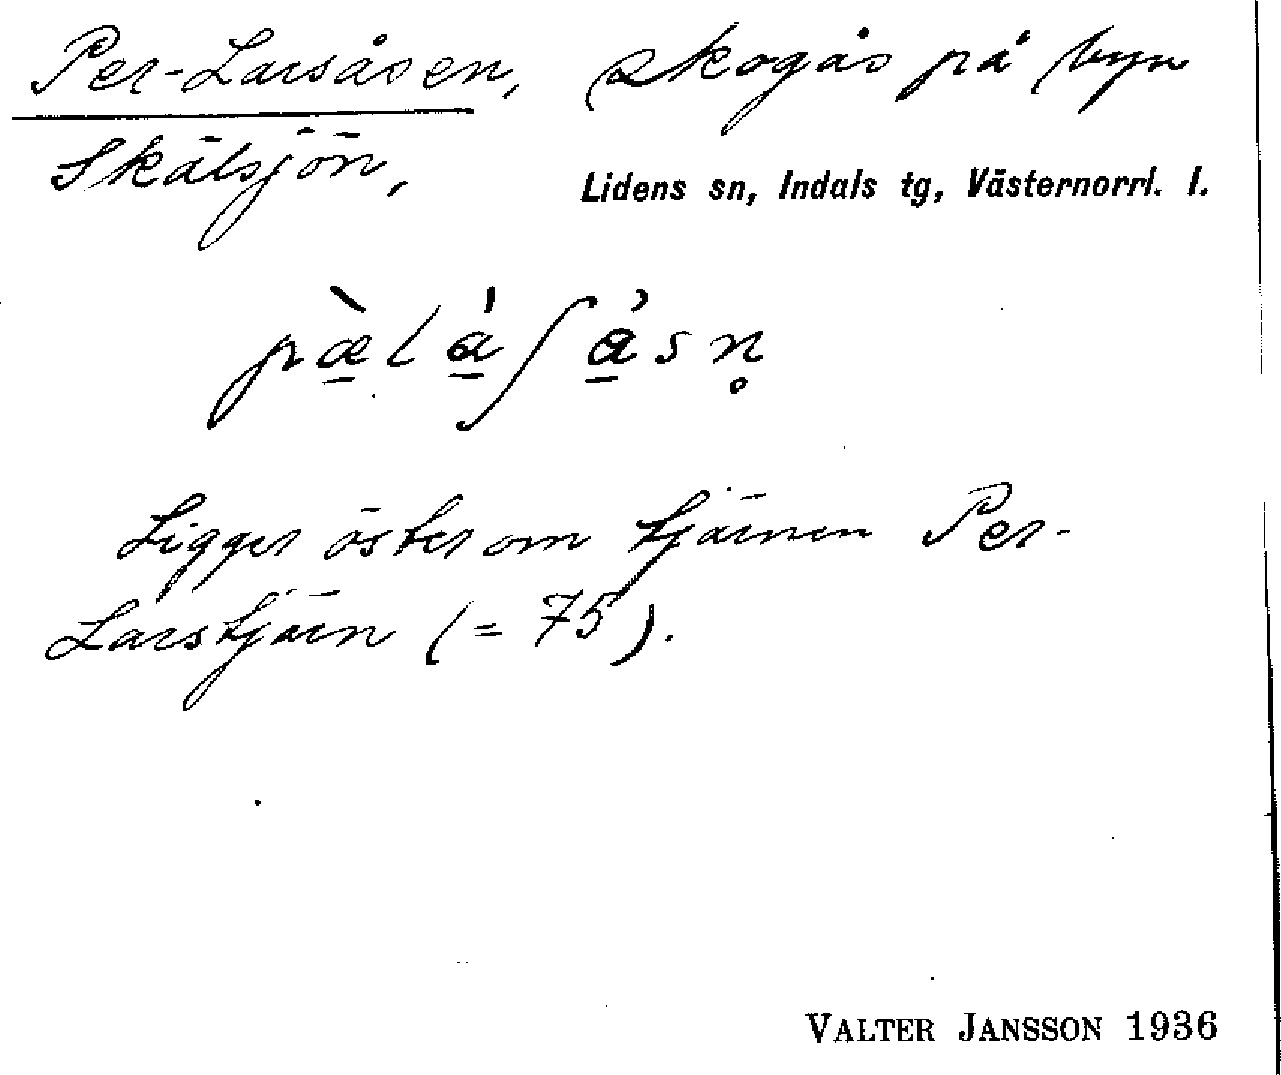 Per-Larsåsen, skogås på byn
Skälsjön,
Lidens sn, Indals tg, Västernorrl. l.
pæ̀lá̱ʃå̱sn̥
Ligger öster om tjärnen Per-
Larstjärn (= 75).
VALTER JANSSON 1936